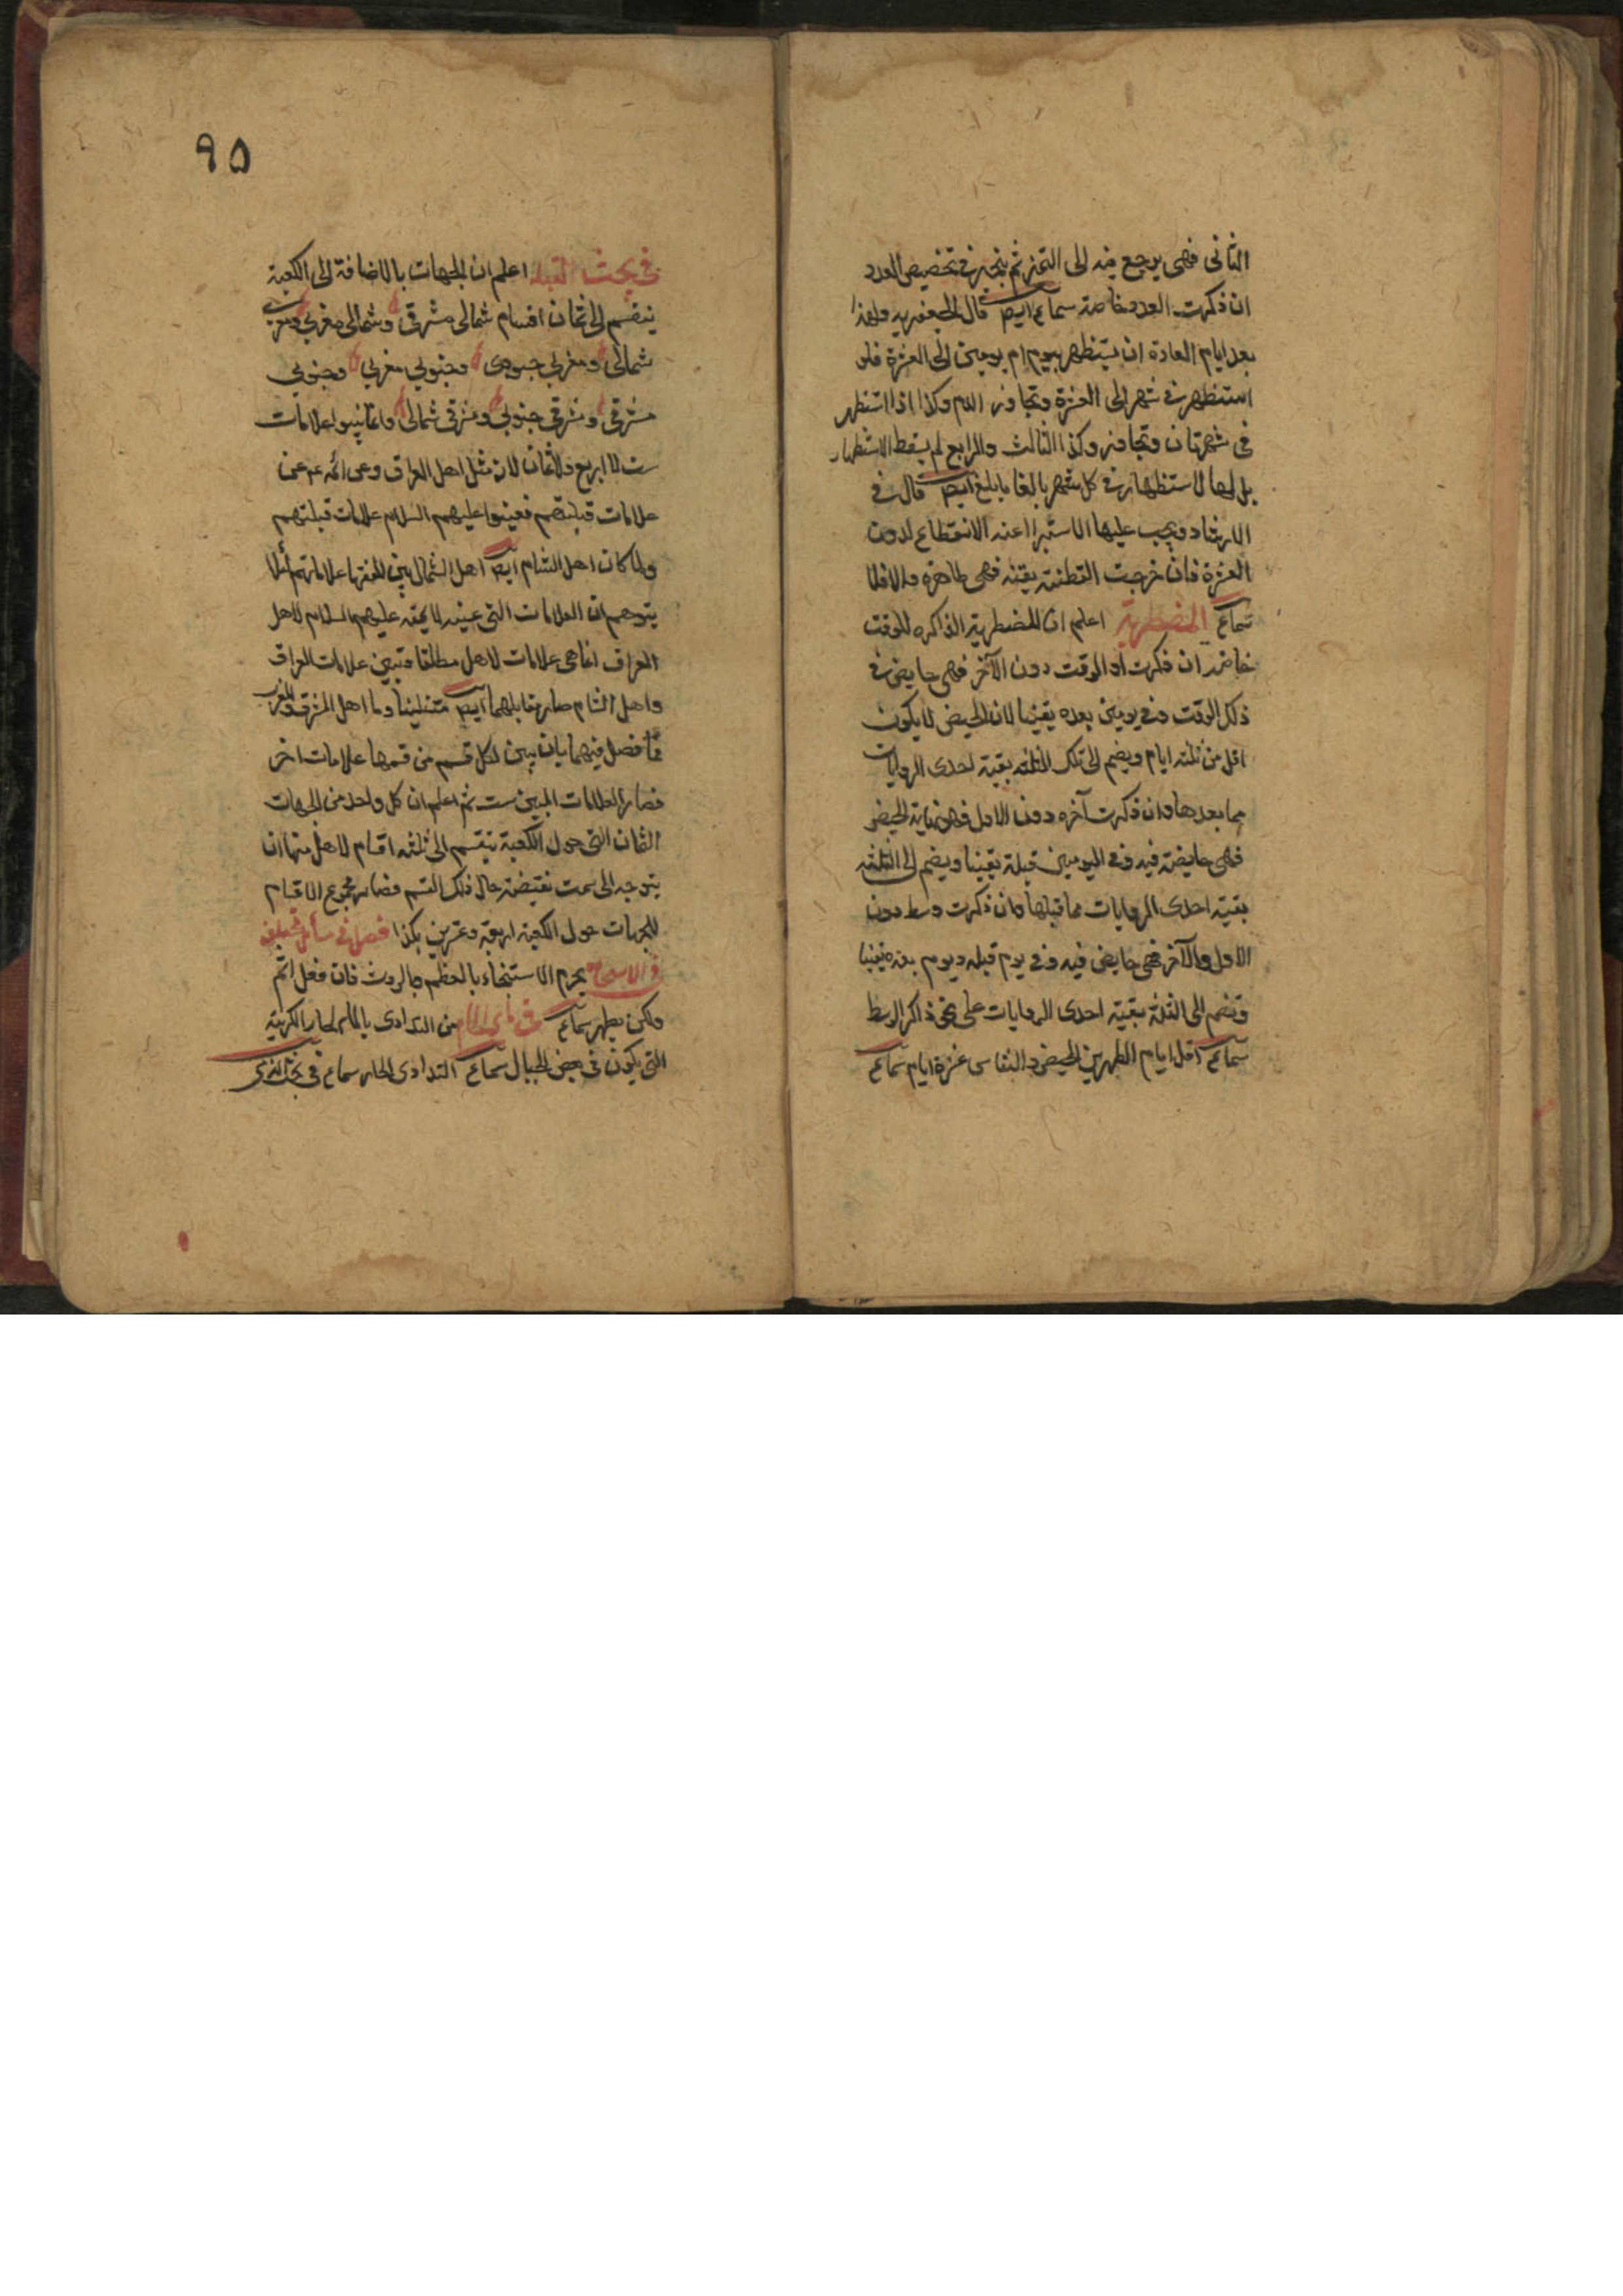 الثانى فهى يرجع فيه الى التميز ثم يتخير فى تخصيص العدد
ان ذكرت العدد خاصة سماع ايضا قال الجعفريه ولهذا
بعد ايام العادة ان يستظهر بيوم ام يومين الى العشرة فلو
استظهرت فى شهر الى العشرة وتجاوز الدم وكذا اذا استظهر
فى شهر ثان وتجاوز وكذا الثالث والرابع لم يسقط الاستظهار
بل لها الاستظهار فى كل شهر بالغا ما بلغ ايضا قال فى
الارشاد ويجب عليها الاستبرا عند الانقطاع لدون
العشرة فان خرجت القطنة نقية فهى طاهرة والا فلا
سماع المضطربة اعلم ان المضطربة الذاكره للوقت
خاصة ان ذكرت اول الوقت دون الآخر فهى حايض فى
ذلك الوقت وفى يومين بعده يقينا لان الحيض لا يكون
اقل من ثلثة ايام ويضم الى تلك الثلثه بقية احدى الروايات
مما بعدها وان ذكرت آخره دون الاول فهو نهاية الحيض
فهى حايضة فيه وفى اليومين قبله يقينا ويضم الى الثلثه
بقية احدى الروايات مما قبلها وان ذكرت وسط دون
الاول والآخر فهى حايض فيه وفى يوم قبله ويوم بعده يقينا
وتضم الى الثلثة بقية احدى الروايات على نحو ذاكر الوسط
سماع اقل ايام الطهر بين الحيض والنفاس عشرة ايام سماع
٩٥
فى بحث القبلة اعلم ان الجهات بالاضافة الى الكعبة
ينقسم الى ثمان اقسام شمالى مشرقى وشمالى مغربى ومغربى
شمالى ومغربى جنوبى وجنوبى مغربى وجنوبى
مشرقى ومشرقى جنوبى ومشرقى شمالى وانما بينوا علامات
ست لا اربع ولا ثمان لان مثل اهل العراق وعى ائمه ع م عن
علامات قبلتهم فعينوا عليهم السلام علامات قبلتهم
ولما كان اهل الشام ايضا اهل الشمال بين الفقها علاماتهم لئلا
يتوهم ان العلامات التى عينه الائمة عليهم السلام لاهل
العراق انما هى علامات لاهل مطلقا وتبين علامات العراق
واهل الشام صار مقابلهما ايضا واما اهل المشرق والمغرب
فما فصل فيهما بان يبين لكل قسم من قسمها علامات اخر
فصار العلامات المبين ست ثم اعلم ان كل واحد من الجهات
الثمان التى حول الكعبة ينقسم الى ثلثه اقسام لاهل منها ان
يتوجه الى سمت نقيضة حال ذلك القسم فصار مجموع الاقسام
للجهات حول الكعبة اربعة وعشرين هكذا فصل فى مسائل مختلفة
فى الاستنجاء يحرم الاستنجاء بالعظم والروث فان فعل اثم
ولكن يطهر سماع من التداوى بالماء الحار الكريهة
التى يكون فى بعض الجبال سماع التداوى الحار سماع فى بحث